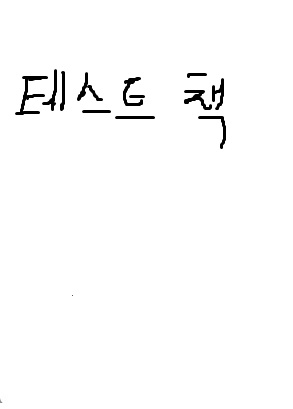 테스트 책